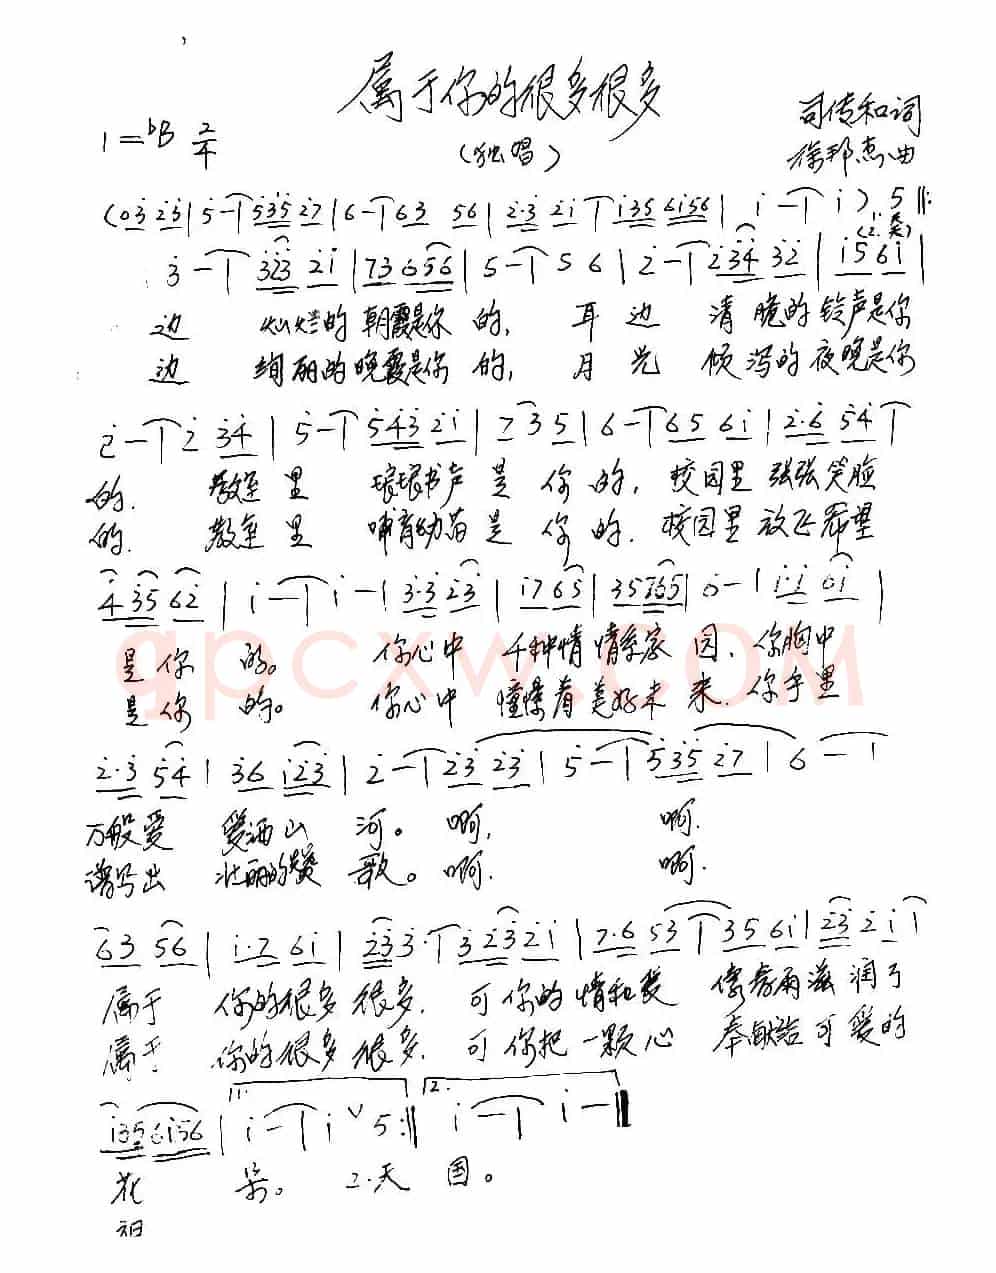 属于你的很多很多
司传和词
1=♭B 2/4
(独唱)
徐邦杰曲
(03 23|5-|535 27|6-|63 56|2·3 21|135 6156|1-|1) 5‖:
1.天
(2.天)
3-|323 21|73 656|5-|56|2-|234 32|1561|
边 灿烂的朝霞是你的, 耳边 清脆的铃声是你
边 绚丽的晚霞是你的, 月光 倾泻的夜晚是你
2-|2 34|5-|543 21|7 3 5|6-|65 61|2·6 54|
的. 教室里 琅琅书声是你的, 校园里张张笑脸
的. 教室里 哺育幼苗是你的. 校园里放飞希望
4 35 62|1-|1-|3·3 23|17 65|35 765|6-|1·1 61|
是你的。 你心中 千种情情系家园, 你胸中
是你的。 你心中 憧憬着美好未来. 你手里
2·3 54|36 123|2-|23 23|5-|535 27|6-|
万般爱 爱洒山河。啊, 啊.
谱写出 壮丽的赞歌。啊. 啊.
63 56|1·7 61|23 3·|3 23 21|7·6 53|35 61|23 21|
属于 你的很多很多. 可你的情和爱 像春雨滋润了
属于 你的很多很多. 可你把一颗心 奉献给可爱的
135 6156|1.1-|1 ∨ 5:‖2.1-|1-‖
花 朵。 2.天 国。
祖
gpcxw.com